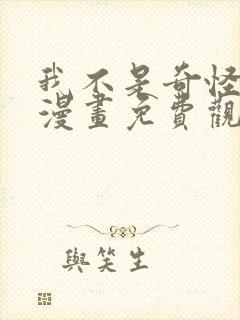 我不是奇怪
漫畫免費觀
與笑生